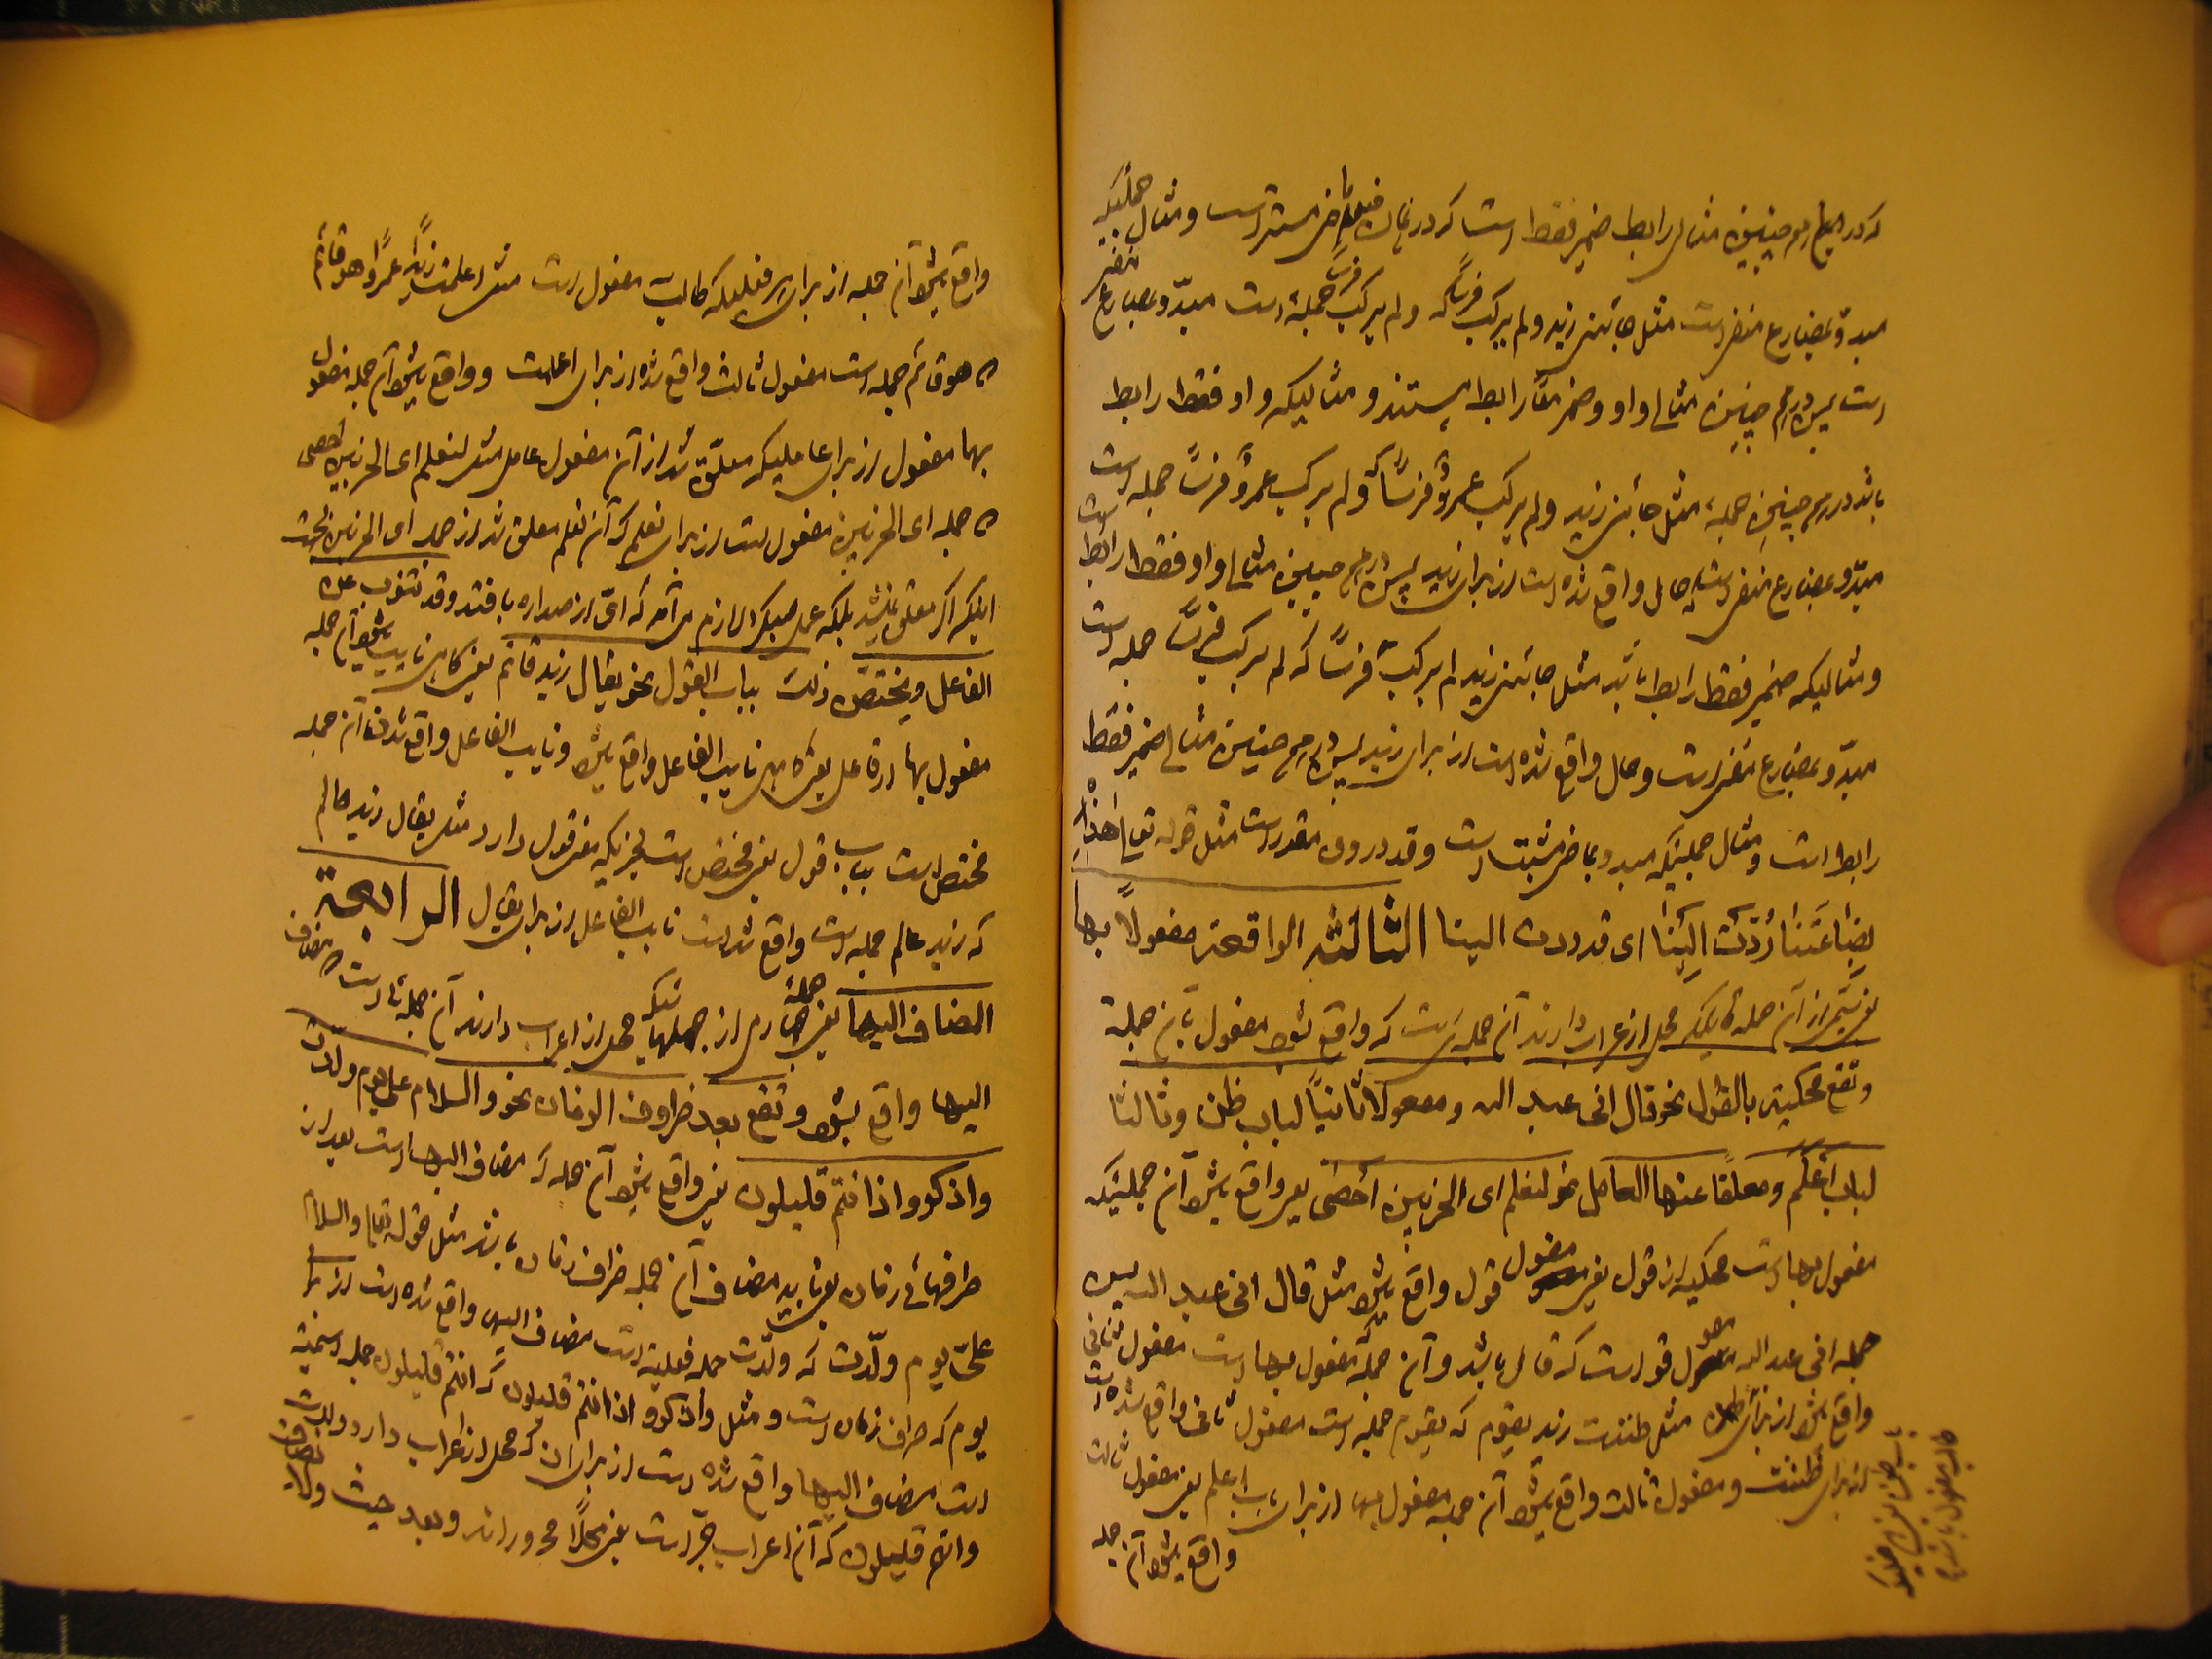 که در همچنین مثال رابط ضمیر فقط است که در فعل ماضی مستتر است و مثال جملیکه
مبدو بمضارع منفی است مثل جائنی زید و لم یرکب فرساً که و لم یرکب فرساً جمله است مبدو بمضارع منفی
است پس در همچنین مثال واو و ضمیر معاً رابط هستند و مثالیکه واو فقط رابط
باشد در همچنین جمله مثل جائنی زید و لم یرکب عمرو فرساً که و لم یرکب عمرو فرساً جمله است
مبدو بمضارع منفی است حال واقع شده است از برای زید پس در همچنین مثال واو فقط رابط است
و مثالیکه ضمیر فقط رابط باشد مثل جائنی زید لم یرکب فرساً که لم یرکب فرساً جمله است
مبدو بمضارع منفی است و حال واقع شده است از برای زید پس در همچنین مثال ضمیر فقط
رابط است و مثال جملیکه مبدو بماضی مثبت است و قد در وی مقدر است مثل قوله تعالی هذه
بضاعتنا ردت الینا ای قد ردت الینا الثالثه الواقعة مفعولاً بها
یعنی سیم از آن جمله هائیکه محل از اعراب دارند آن جمله است که واقع بشود مفعول بآن جمله
و تقع محکیة بالقول نحو قال انی عبد الله و مفعولاً ثانیاً لباب ظن و ثالثا
لباب اعلم و معلقا عنها العامل نحو لنعلم ای الحزبین احصی یعنی واقع بشود آن جملیکه
مفعول بها است محکیه از قول یعنی مفعول قول واقع بشود مثل قال انی عبد الله پس
جمله انی عبد الله مقول قول است که قال باشد و آن جمله مفعول بها است مفعول ثانی
واقع بشود از برای ظن مثل ظننت زید یقوم که یقوم جمله است مفعول ثانی واقع شده است
از برای ظننت و مفعول ثالث واقع بشود آن جمله مفعول بها از برای باب اعلم یعنی مفعول ثالث
واقع بشود آن جمله
واقع بشود آن جمله از برای هر فعلیکه طالب مفعول است مثل اعلمت زیداً عمرواً هو قائم
که هو قائم جمله است مفعول ثالث واقع شده از برای اعلمت و واقع بشود آن جمله مفعول
بها مفعول از برای عاملیکه معلق شد از آن مفعول عامل مثل لنعلم ای الحزبین احصی
که جمله ای الحزبین مفعول است از برای نعلم که آن نعلم معلق شد از جمله ای الحزبین بجهت
اینکه اگر معلق نشد بلکه عمل میکرد لازم می آمد که ای از صداره بافتد و قد تنوب عن
الفاعل و یختص ذلک بباب القول نحو یقال زید قائم یعنی گاهی نایب بشود آن جمله
مفعول بها از فاعل یعنی گاهی نایب الفاعل واقع بشود و نایب الفاعل واقع شدن آن جمله
مختص است بباب قول یعنی مختص است بچیزیکه معنی قول دارد مثل یقال زید عالم
که زید عالم جمله است واقع شد است نایب الفاعل از برای یقال الرابعة
المضاف الیها یعنی جمله چهارمی از جملهائیکه محل از اعراب دارند آن جمله است که مضاف
الیها واقع بشود و تقع بعد ظروف الزمان نحو والسلام علی یوم ولدت
واذکروا اذ انتم قلیلون یعنی واقع بشود آن جمله که مضاف الیها است بعد از
ظرفهائی زمان یعنی باید مضاف آن جمله ظرف زمان باشد مثل قوله تعالی والسلام
علی یوم ولدت که ولدت جمله فعلیة است مضاف الیها واقع شده است از برای
یوم که ظرف زمان است و مثل واذکروا اذ انتم قلیلون که انتم قلیلون جمله اسمیة
است مضاف الیها واقع شده است از برای اذ که محل از اعراب دارد ولدت
وانتم قلیلون که آن اعراب جر است یعنی محلاً مجرورند و بعد حیث ولا یضاف